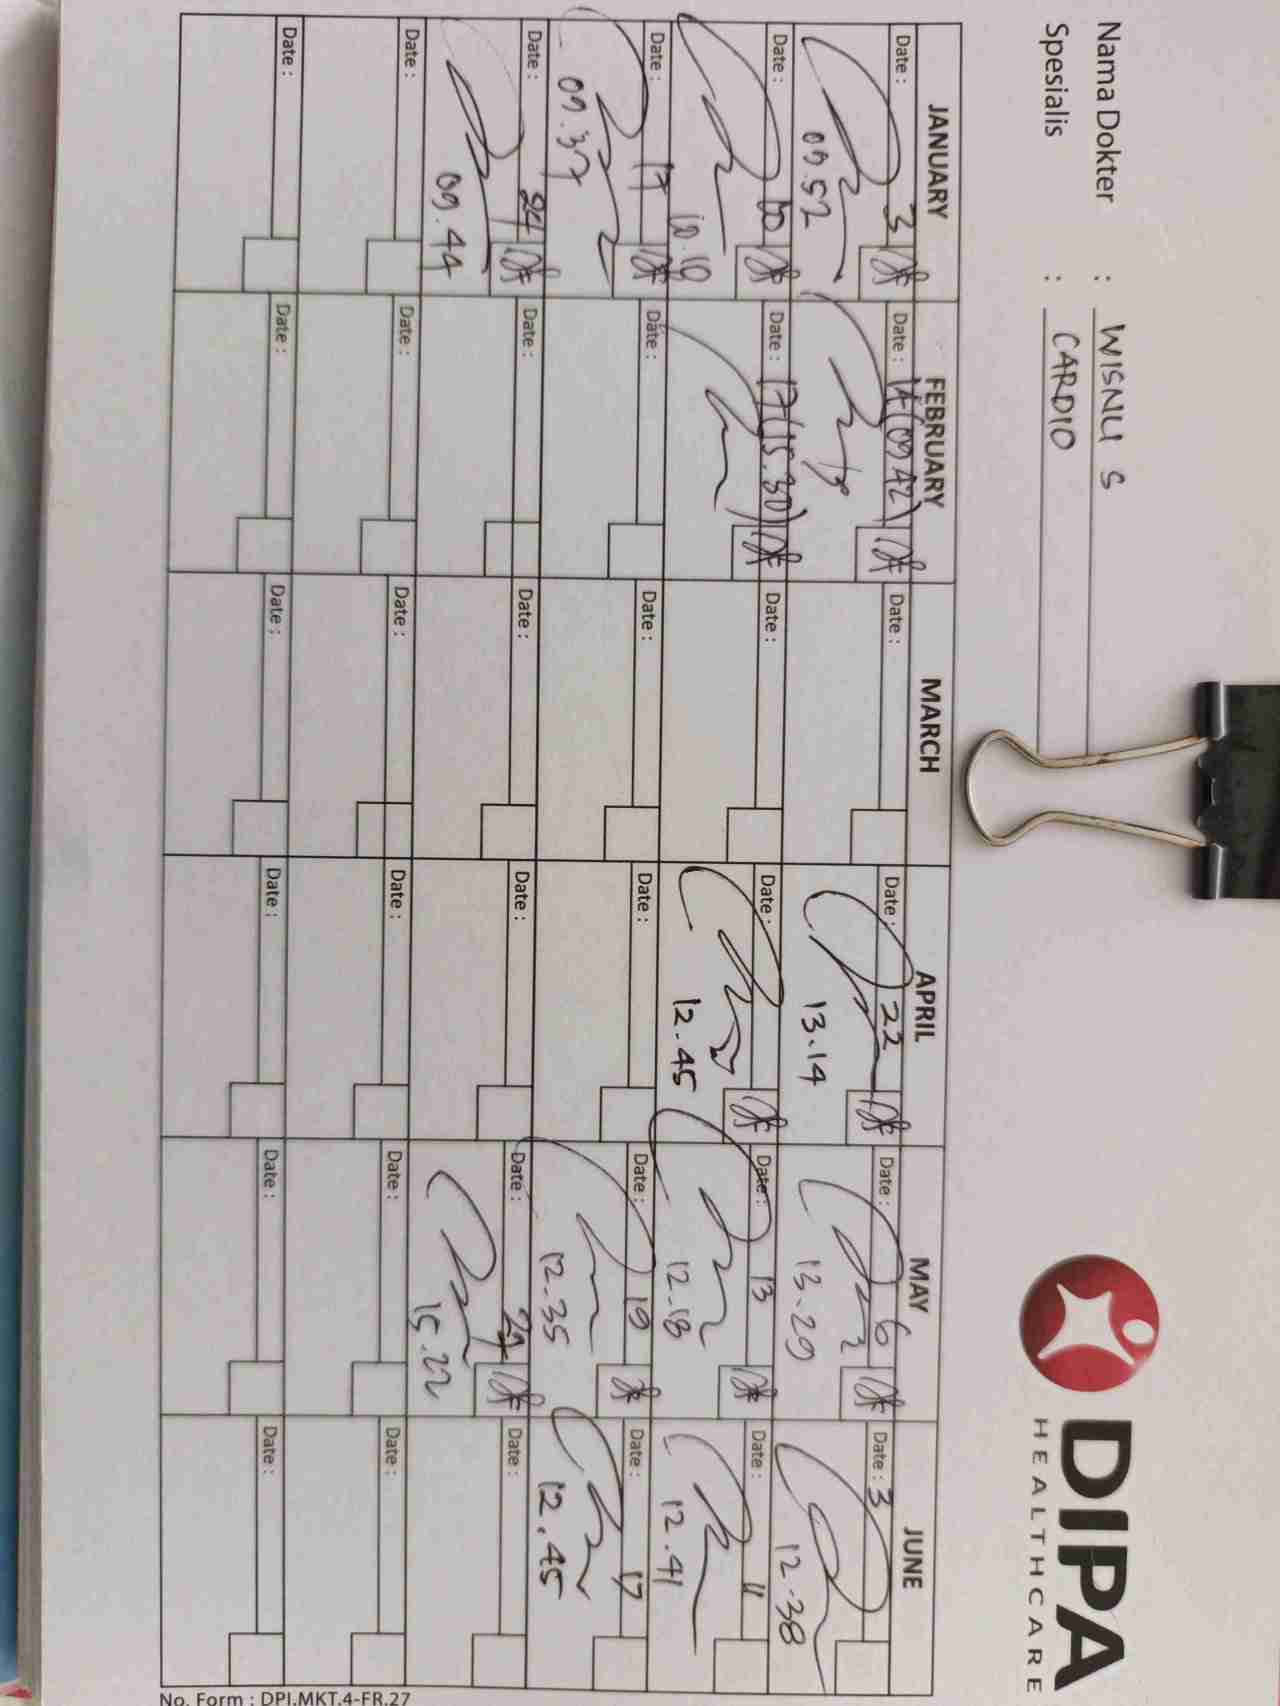 DIPA
HEALTHCARE
Nama Dokter : WISNU S
Spesialis : CARDIO
JANUARY FEBRUARY MARCH APRIL MAY JUNE
Date : 3 Date : 14 (09.42) Date : Date : 22 Date : 6 Date : 3
09.52 13.14 13.29 12.38
Date : 10 Date : 17 (15.30) Date : Date : Date : 13 Date : 11
10.10 12.45 12.18 12.41
Date : 17 Date : Date : Date : Date : 19 Date : 17
09.37 12.35 12.45
Date : 24 Date : Date : Date : Date : Date :
09.44 15.22
Date : Date : Date : Date : Date : Date :
Date : Date : Date : Date : Date : Date :
No. Form : DPI.MKT.4-FR.27